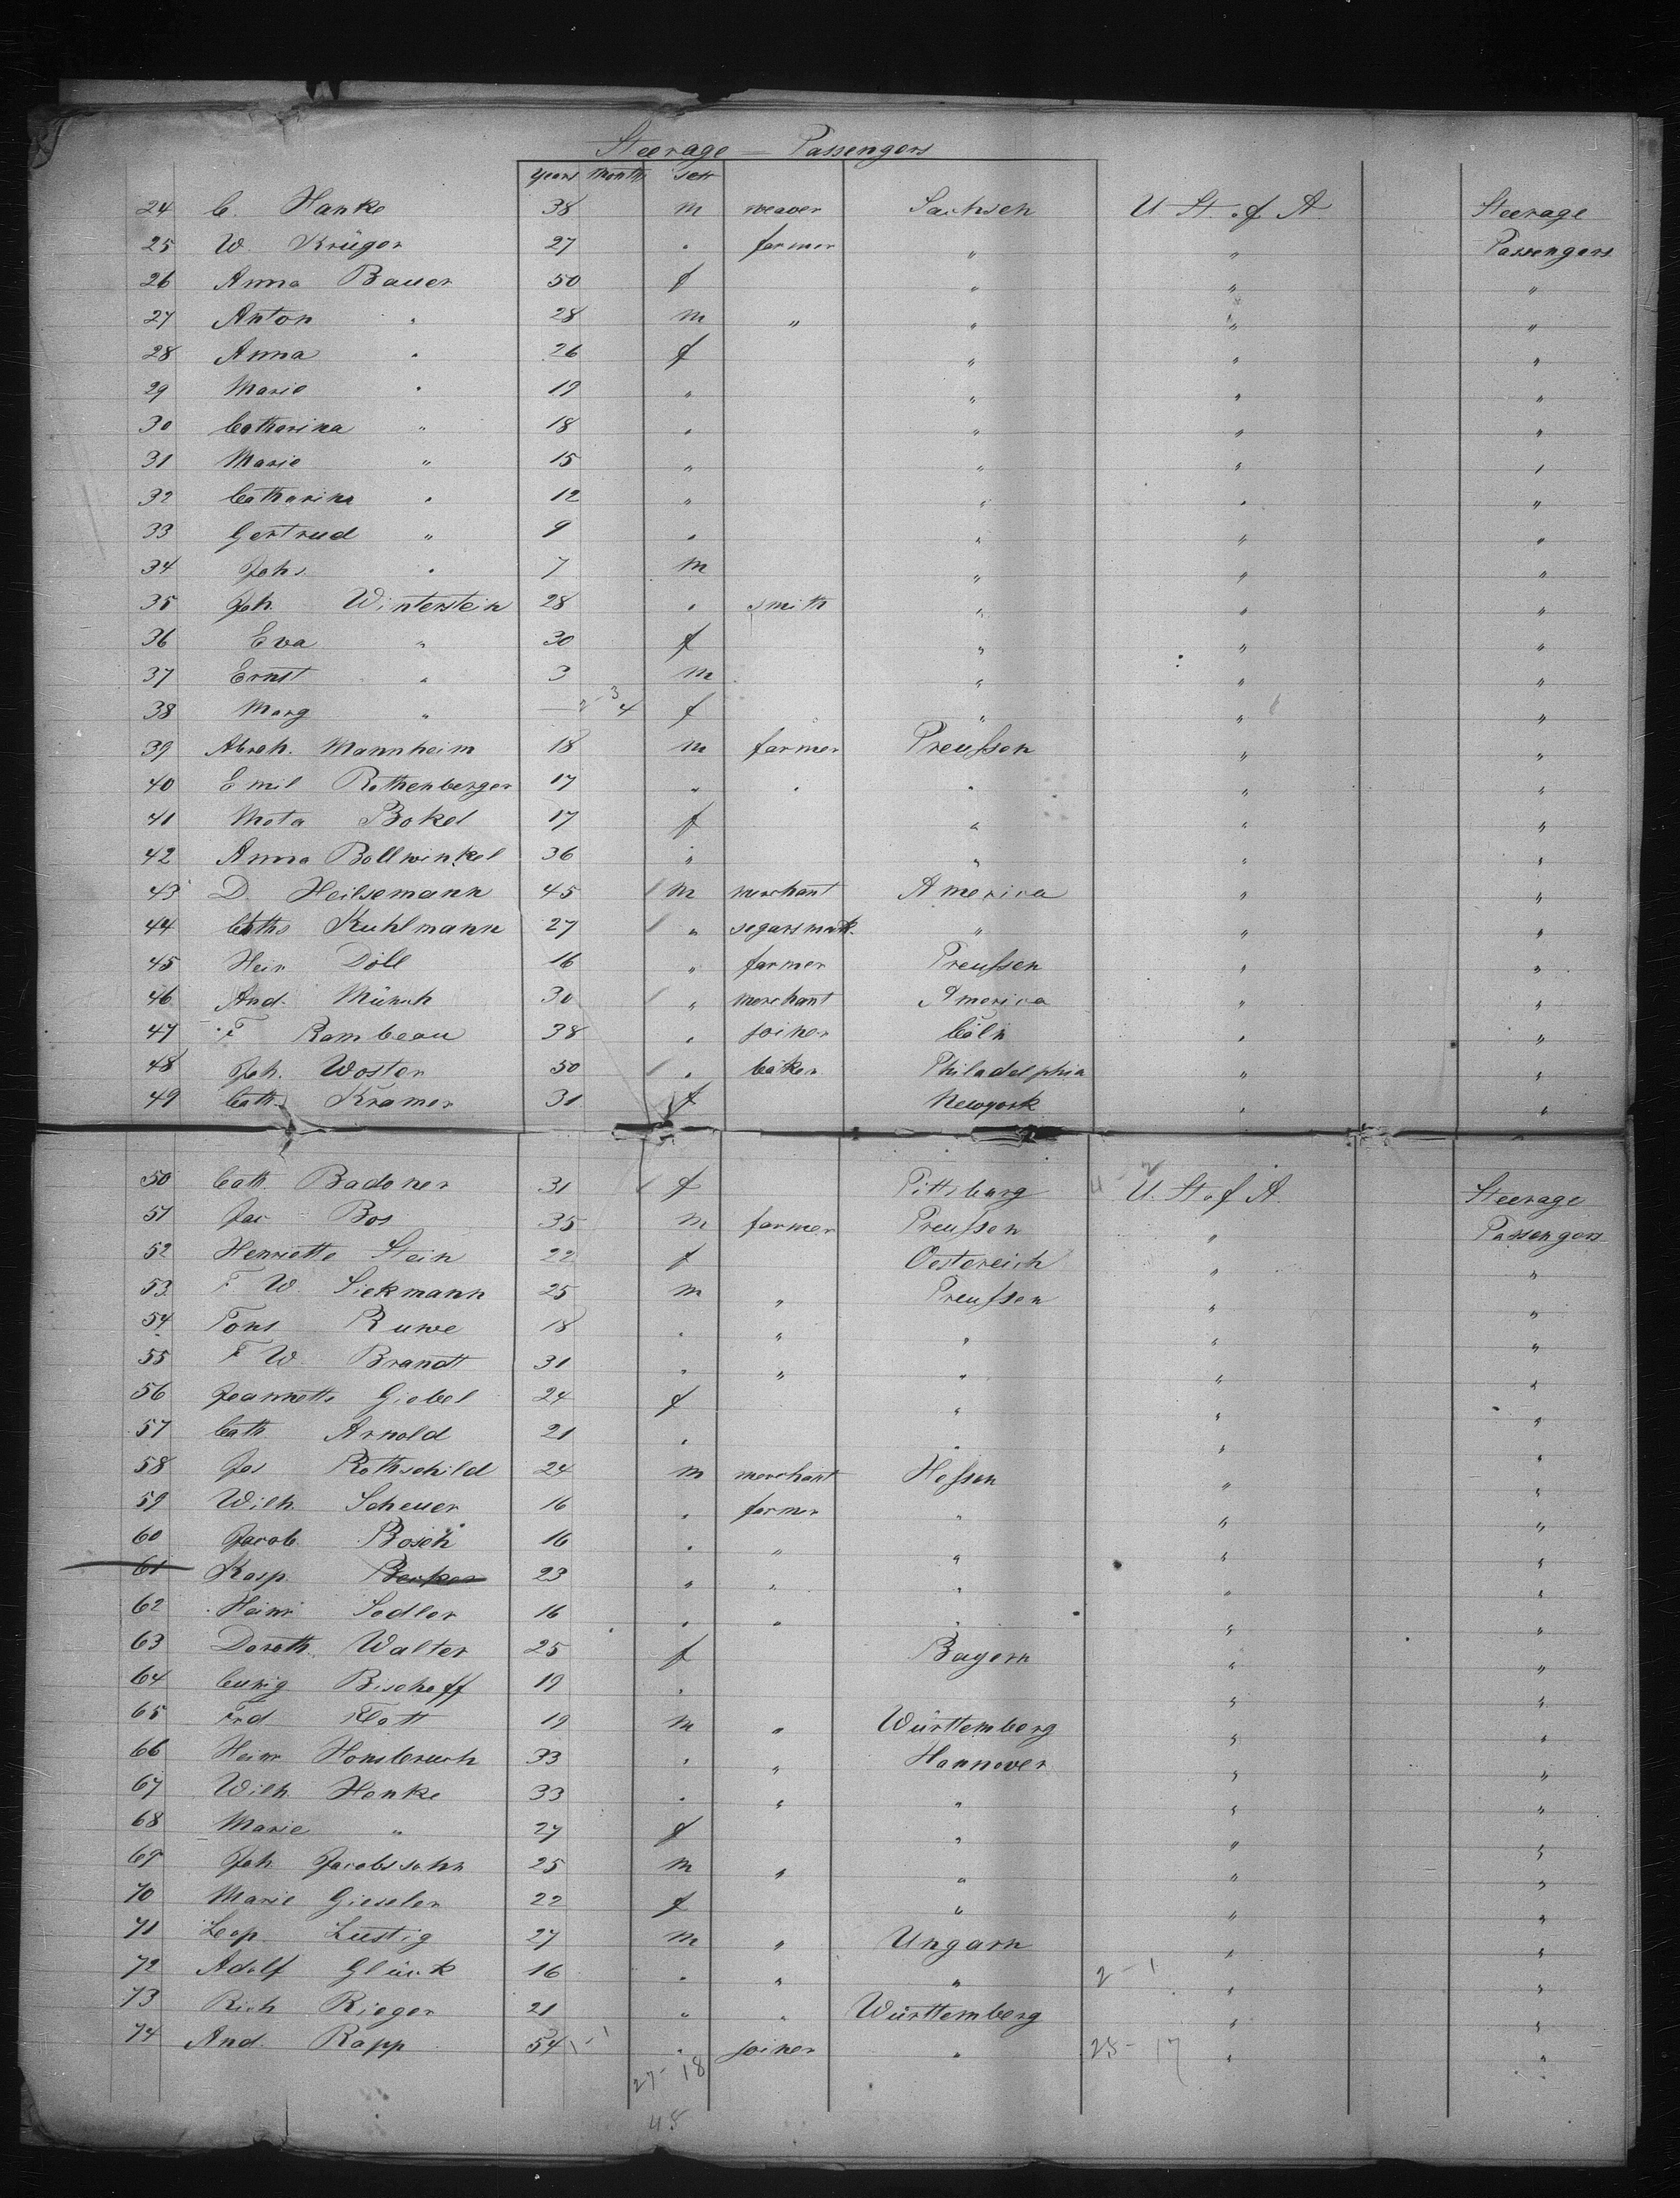 Steerage — Passengers
years month sex
24 C. Hanke 38 m weaver Sachsen U. St. of A Steerage
25 W. Krüger 27 " farmer " " Passengers
26 Anna Bauer 50 f " " "
27 Anton " 28 m " " " "
28 Anna " 26 f " " "
29 Marie " 19 " " " "
30 Catharina " 18 " " " "
31 Marie " 15 " " " "
32 Catharina " 12 " " " "
33 Gertrud " 9 " " " "
34 Johs " 7 m " " "
35 Joh. Winterstein 28 " smith " " "
36 Eva " 30 f " " "
37 Ernst " 3 m " " "
38 Marg " — f " " "
39 Abrah. Mannheim 18 m farmer Preußen " "
40 Emil Rothenberger 17 " " " " "
41 Meta Bokel 17 f " " "
42 Anna Bollwinkel 36 " " " "
43 D. Heilsemann 45 m merchant America " "
44 Kuhlmann 27 " segarsmak. " " "
45 Heir Döll 16 " farmer Preußen " "
46 And. Münch 30 " merchant America " "
47 F Rambeau 38 " joiner Cöln " "
48 Joh. Woster 50 " baker Philadelphia " "
49 Cath. Kramer 31 f Newyork " "
50 Cath. Badoner 31 f Pittsburg U. St. of A. Steerage
51 Jac Bos 35 m farmer Preußen " Passengers
52 Henriette Stein 22 f Oestereich " "
53 F W. Siekmann 25 m " Preußen " "
54 Tons Ruwe 18 " " " " "
55 F W. Brandt 31 " " " " "
56 Jeannette Giebel 24 f " " "
57 Cath Arnold 21 " " " "
58 Jos Rothschild 24 m merchant Heßen " "
59 Wilh. Scheuer 16 " farmer " " "
60 Jacob Bosch 16 " " " " "
61 Kasp. Becker 23 " " " " "
62 Heinr Sedler 16 " " " " "
63 Doroth. Walter 25 f Bayern " "
64 Bischoff 19 " " "
65 Frd Klott 19 m " Württemberg " "
66 Heinr Honsbruch 33 " " Hannover " "
67 Wilh Henke 33 " " " " "
68 Marie " 27 f " " "
69 Joh Jacobssohn 25 m " " " "
70 Marie Gieseler 22 f " " "
71 Leop. Lustig 27 m " Ungarn " "
72 Adolf Glück 16 " " " 2-1 " "
73 Rich Rieger 21 " " Württemberg " "
74 And. Rapp 54 1-1 " joiner " 25-17 " "
27-18
45